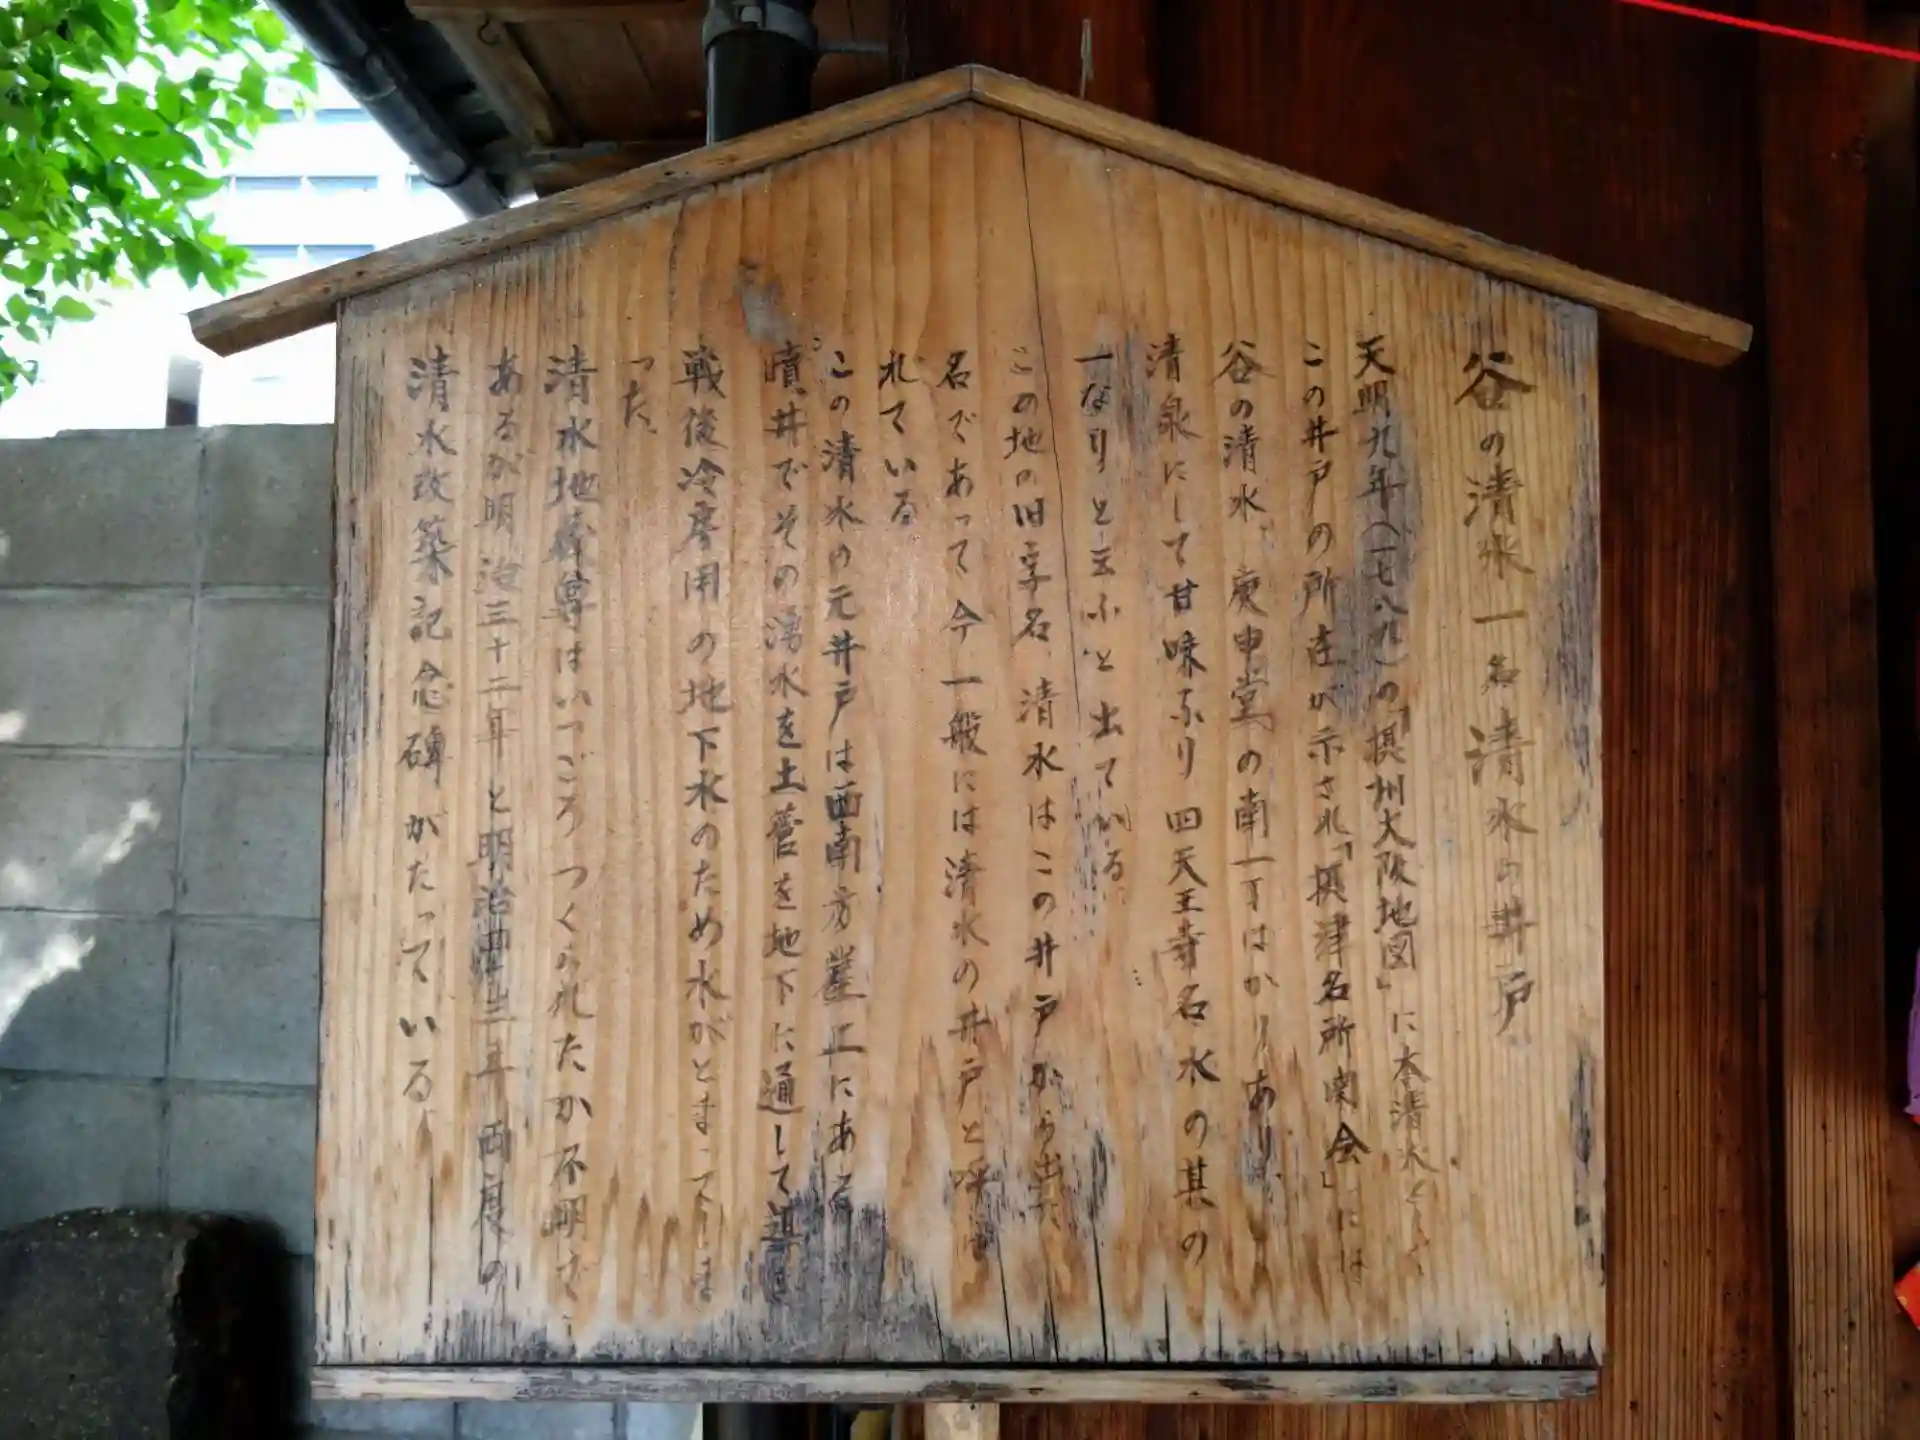 谷の清水一名清水の井戸
天明九年(一七八九)の「摂州大阪地図」に本清水として
この井戸の所在が示され「摂津名所図会」には
谷の清水、庚申堂の南一丁はかりあり、
清泉にして甘味なり四天王寺名水の其の
一なりと云ふ、と出ている
この地の旧字名、清水はこの井戸から出た
名であって今一般には清水の井戸と呼ば
れている
この清水の元井戸は西南方崖上にある
噴井でその湧水を土管を地下に通して導
戦後冷房用の地下水のため水がとまってしま
った、
清水地蔵尊はいつごろつくられたか不明で
あるが明治三十二年と明治 三年両度の
清水改築記念碑がたっている